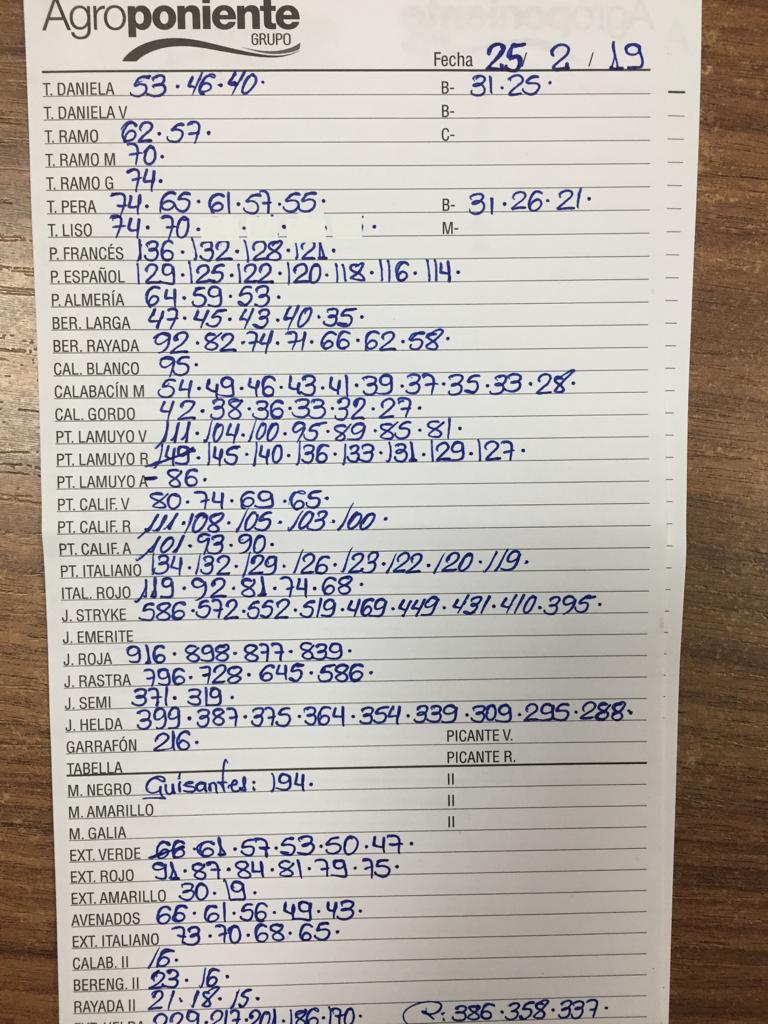 Agroponiente
GRUPO
Fecha 25 / 2 / 19
T. DANIELA 53·46·40· B- 31·25·
T. DANIELA V B-
T. RAMO 62·57· C-
T. RAMO M 70·
T. RAMO G 74·
T. PERA 74·65·61·57·55· B- 31·26·21·
T. LISO 74·70· M-
P. FRANCÉS 136·132·128·121·
P. ESPAÑOL 129·125·122·120·118·116·114·
P. ALMERÍA 64·59·53·
BER. LARGA 47·45·43·40·35·
BER. RAYADA 92·82·74·71·66·62·58·
CAL. BLANCO 95·
CALABACÍN M 54·49·46·43·41·39·37·35·33·28·
CAL. GORDO 42·38·36·33·32·27·
PT. LAMUYO V 111·104·100·95·89·85·81·
PT. LAMUYO R 149·145·140·136·133·131·129·127·
PT. LAMUYO A 86·
PT. CALIF. V 80·74·69·65·
PT. CALIF. R 111·108·105·103·100·
PT. CALIF. A 101·93·90·
PT. ITALIANO 134·132·129·126·123·122·120·119·
ITAL. ROJO 119·92·81·74·68·
J. STRYKE 586·572·552·519·469·449·431·410·395·
J. EMERITE
J. ROJA 916·898·877·839·
J. RASTRA 796·728·645·586·
J. SEMI 371·319·
J. HELDA 399·387·375·364·354·339·309·295·288·
GARRAFÓN 216· PICANTE V.
TABELLA PICANTE R.
M. NEGRO Guisantes: 194· II
M. AMARILLO II
M. GALIA II
EXT. VERDE 66 61·57·53·50·47·
EXT. ROJO 91·87·84·81·79·75·
EXT. AMARILLO 30·19·
AVENADOS 66·61·56·49·43·
EXT. ITALIANO 73·70·68·65·
CALAB. II 16·
BERENG. II 23·16·
RAYADA II 21·18·15·
EXT. HELDA 229·217·201·186·170· P: 386·358·337·